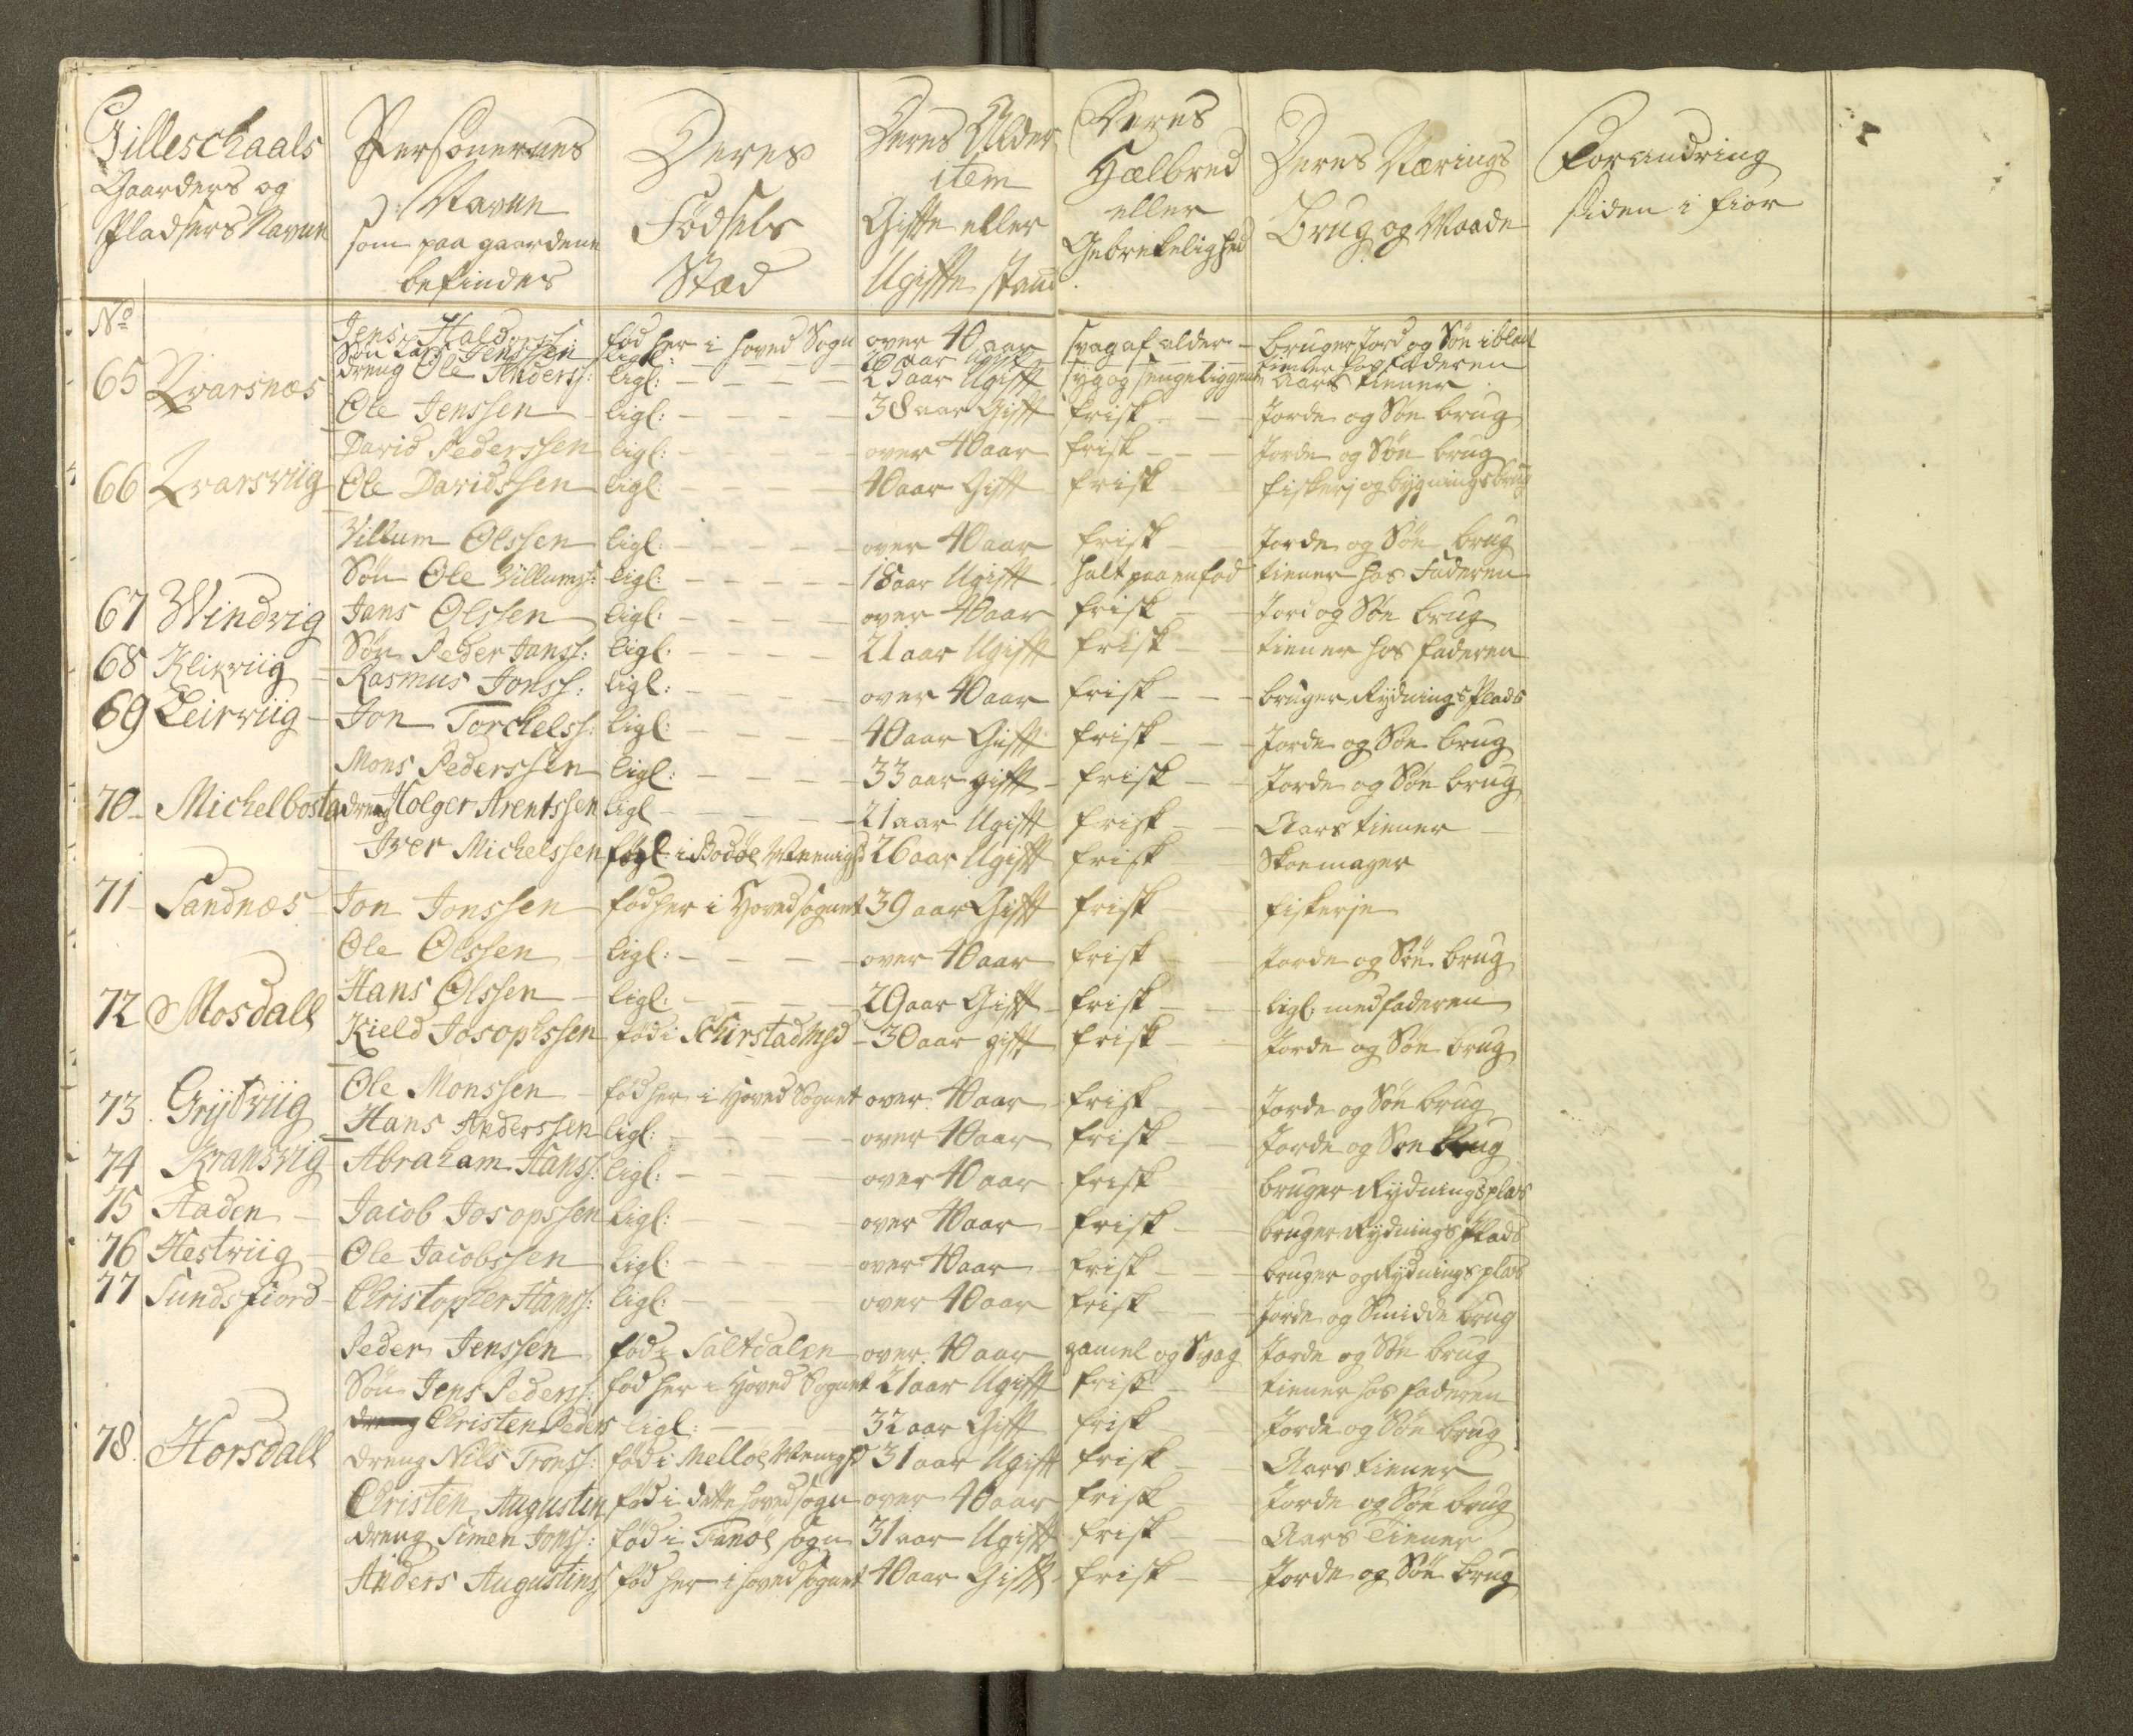 Gilleschaals Gaarders og Pladsers Navne
Personernes Navne som paa gaardene befindes
Deres Fødsels Stæd
Deres Alder item Gifte eller Ugifte stand
Deres Hælbred eller Gebrekelighed
Deres Nærings Brug og Maade
Forandring siden i fior
No
Jens Haldorss: fød her i hoved Sogn over 40 aar svag af alder - bruger Jord og Søe iblant
Søn Lars Jenssen ligl: aar Ugift tiener hos faderen
65 Qvarsnæs dreng Ole Anderss: ligl: - - - - 25 aar Ugift syg og sengeliggende Aars tiener
Ole Jenssen ligl: - - - - 38 aar Gift frisk - - Jorde og Søe brug
David Pederssen ligl: - - - - over 40 aar frisk - - Jorde og Søe brug
66 Qvarsviig Ole Davidssen ligl: 40 aar Gift frisk - - fiskerj og bygningsbrug
Villum Olssen ligl: - - - - over 40 aar frisk - - Jorde og Søe brug
Søn Ole Villumss: ligl: - - - - 18 aar Ugift halt paa en fod tiener hos Faderen
67 Windvig Jans Olssen ligl: - - - - over 40 aar frisk - - Jord og Søe brug
Søn Peder Janss: ligl: - - - - 21 aar Ugift frisk - - tiener hos faderen
68 Klikviig - Rasmus Jonss: ligl: - - - - over 40 aar frisk - - bruger Rydnings Plads
69 Leirviig - Jon Torchelss: ligl: - - - - 40 aar Gift frisk - - Jorde og Søe brug
Mons Pederssen ligl: - - - - 33 aar gift - frisk - - Jorde og Søe brug
70 - Michelbosta dreng Holger Arentssen ligl - - - - 21 aar Ugift frisk - - Aars tiener -
Iver Michelssen i Bodøe Menigh 26 aar Ugift frisk - - Skoemager
71 - Sandnæs - Jon Jonssen fød her i Hovedsognet 39 aar Gift frisk - fiskerje
Ole Olssen - ligl: - - - over 40 aar frisk - - Jorde og Søe brug
72 Mosdall Hans Olssen - ligl: - - - 29 aar Gift - frisk - - ligl: med faderen
Kield Josophssen fød i Schirstad Mgd - 30 aar gift frisk - Jorde og Søe brug
Ole Monssen - fød her i Hoved Sognet over 40 aar frisk - - Jorde og Søe brug
73. Grytviig Hans Anderssen ligl: - - - over 40 aar frisk - - Jorde og Søe brug
74 Kransvig - Abraham Hanss: ligl: - over 40 aar frisk bruger Rydningsplas
75 Haden - Jacob Josopssen ligl: - - - over 40 aar - frisk - - bruger Rydnings Plads
76 Hestviig - Ole Jacobssen ligl: - - - over 40 aar - frisk - - bruger og Rydningsplas
77 Sundsfiord - Christopher Hanss: ligl: - - over 40 aar frisk - - Jorde og Smidde brug
Peder Jenssen fød i Saltdalen over 40 aar gamel og Svag Jorde og Søe brug
Søn Jens Pederss: fød her i Hoved Sognet 21 aar Ugift frisk - - tiener hos faderen
dreng Christen Peders ligl: - - 32 aar Gift frisk Jorde og Søe brug
78. Horsdall dreng Nils Tronss: fød i Melløe Menigh 31 aar Ugift frisk - Aars tiener
Christen Augustin fød i dette hovedsogn over 40 aar frisk Jorde og Søe brug
dreng Simen Jonss: fød i Fanøe sogn 31 aar Ugift frisk Aars Tiener
Anders Augustins fød her i hovedsognet 40 aar Gift - frisk - - Jorde og Søe brug